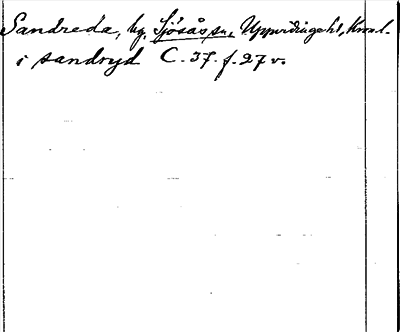 Sandreda, by, Sjösås sn, Uppvidinge hd, Kron.l.
i sandryd C. 37. f. 27 v.